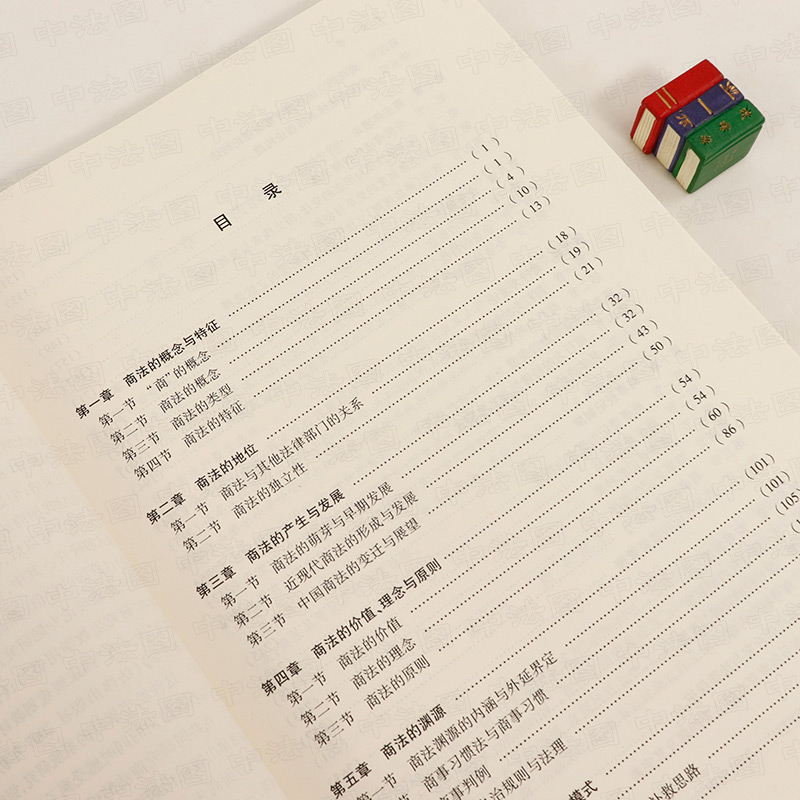 目 录
第一章 商法的概念与特征 (1)
第一节 “商”的概念 (1)
第二节 商法的概念 (4)
第三节 商法的类型 (10)
第四节 商法的特征 (13)
第二章 商法的地位 (18)
第一节 商法与其他法律部门的关系 (19)
第二节 商法的独立性 (21)
第三章 商法的产生与发展 (32)
第一节 商法的萌芽与早期发展 (32)
第二节 近现代商法的形成与发展 (43)
第三节 中国商法的变迁与展望 (50)
第四章 商法的价值、理念与原则 (54)
第一节 商法的价值 (54)
第二节 商法的理念 (60)
第三节 商法的原则 (86)
第五章 商法的渊源 (101)
第一节 商法渊源的内涵与外延界定 (101)
商事习惯法与商事习惯 (105
事判例
治规则与法理
模式
救思路
中法图